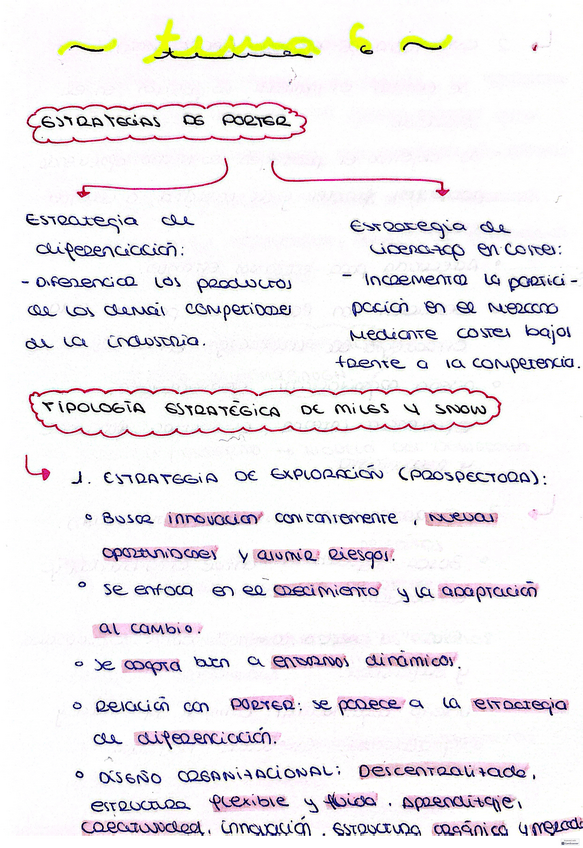 ~ tema 6 ~
ESTRATEGIAS DE PORTER
Estrategia de
diferenciación:
- Diferencia los productos
de los demás competidores
de la industria.
Estrategia de
Liderazgo en costes:
- Incrementa la partici-
pación en el mercado
mediante costes bajos
frente a la competencia.
TIPOLOGÍA ESTRATÉGICA DE MILES Y SNOW
1. ESTRATEGIA DE EXPLORACIÓN (PROSPECTORA):
° Busca innovación constantemente, nuevas
oportunidades y asumir riesgos.
° Se enfoca en el crecimiento y la adaptación
al cambio.
° Se adapta bien a entornos dinámicos.
° Relación con PORTER: se parece a la estrategia
de diferenciación.
° DISEÑO ORGANIZACIONAL: Descentralizada,
estructura flexible y fluida. Aprendizaje,
creatividad, innovación. Estructura orgánica y